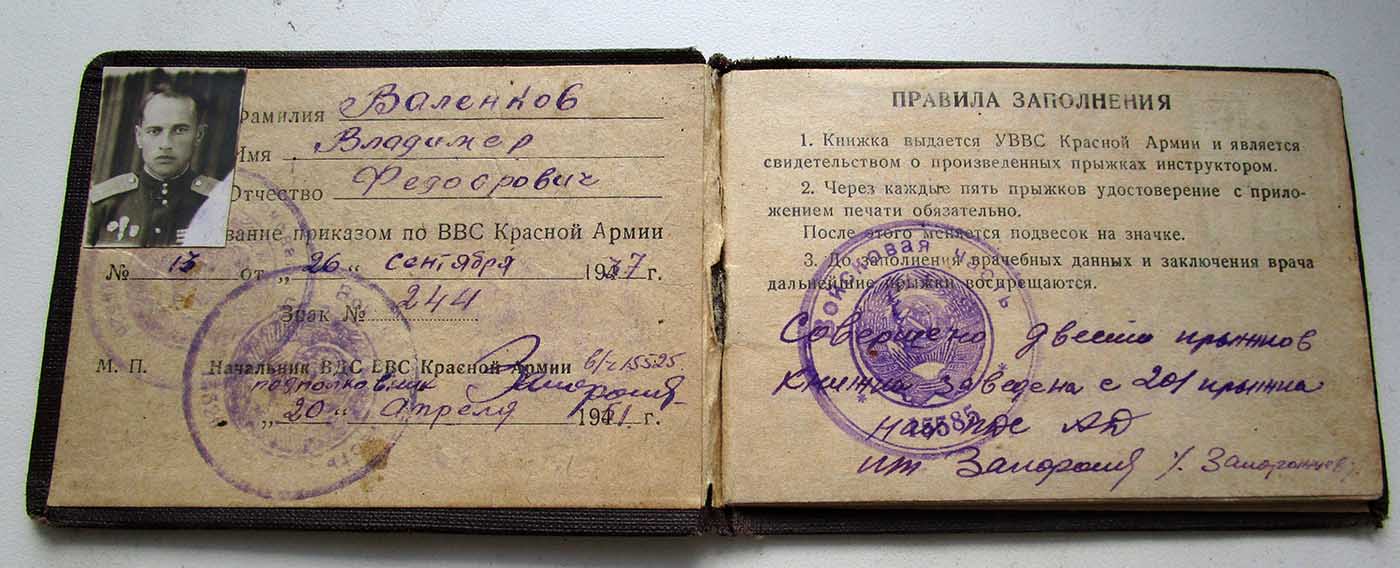 Фамилия Валенков
Имя Владимер
Отчество Федорович
вание приказом по ВВС Красной Армии
№ 13 от „ 26 “ сентября 1947 г.
Знак № 244
М. П. Начальник ВДС ВВС Красной Армии в/ч 15525
подполковник
„ 20 “ апреля 19 1 г.
ПРАВИЛА ЗАПОЛНЕНИЯ
1. Книжка выдается УВВС Красной Армии и является
свидетельством о произведенных прыжках инструктором.
2. Через каждые пять прыжков удостоверение с прило-
жением печати обязательно.
После этого меняется подвесок на значке.
3. До заполнения врачебных данных и заключения врача
дальнейшие прыжки воспрещаются.
Войсковая часть
Совершено двести прыжков
Книжка заведена с 201 прыжка
нач ПДС АД